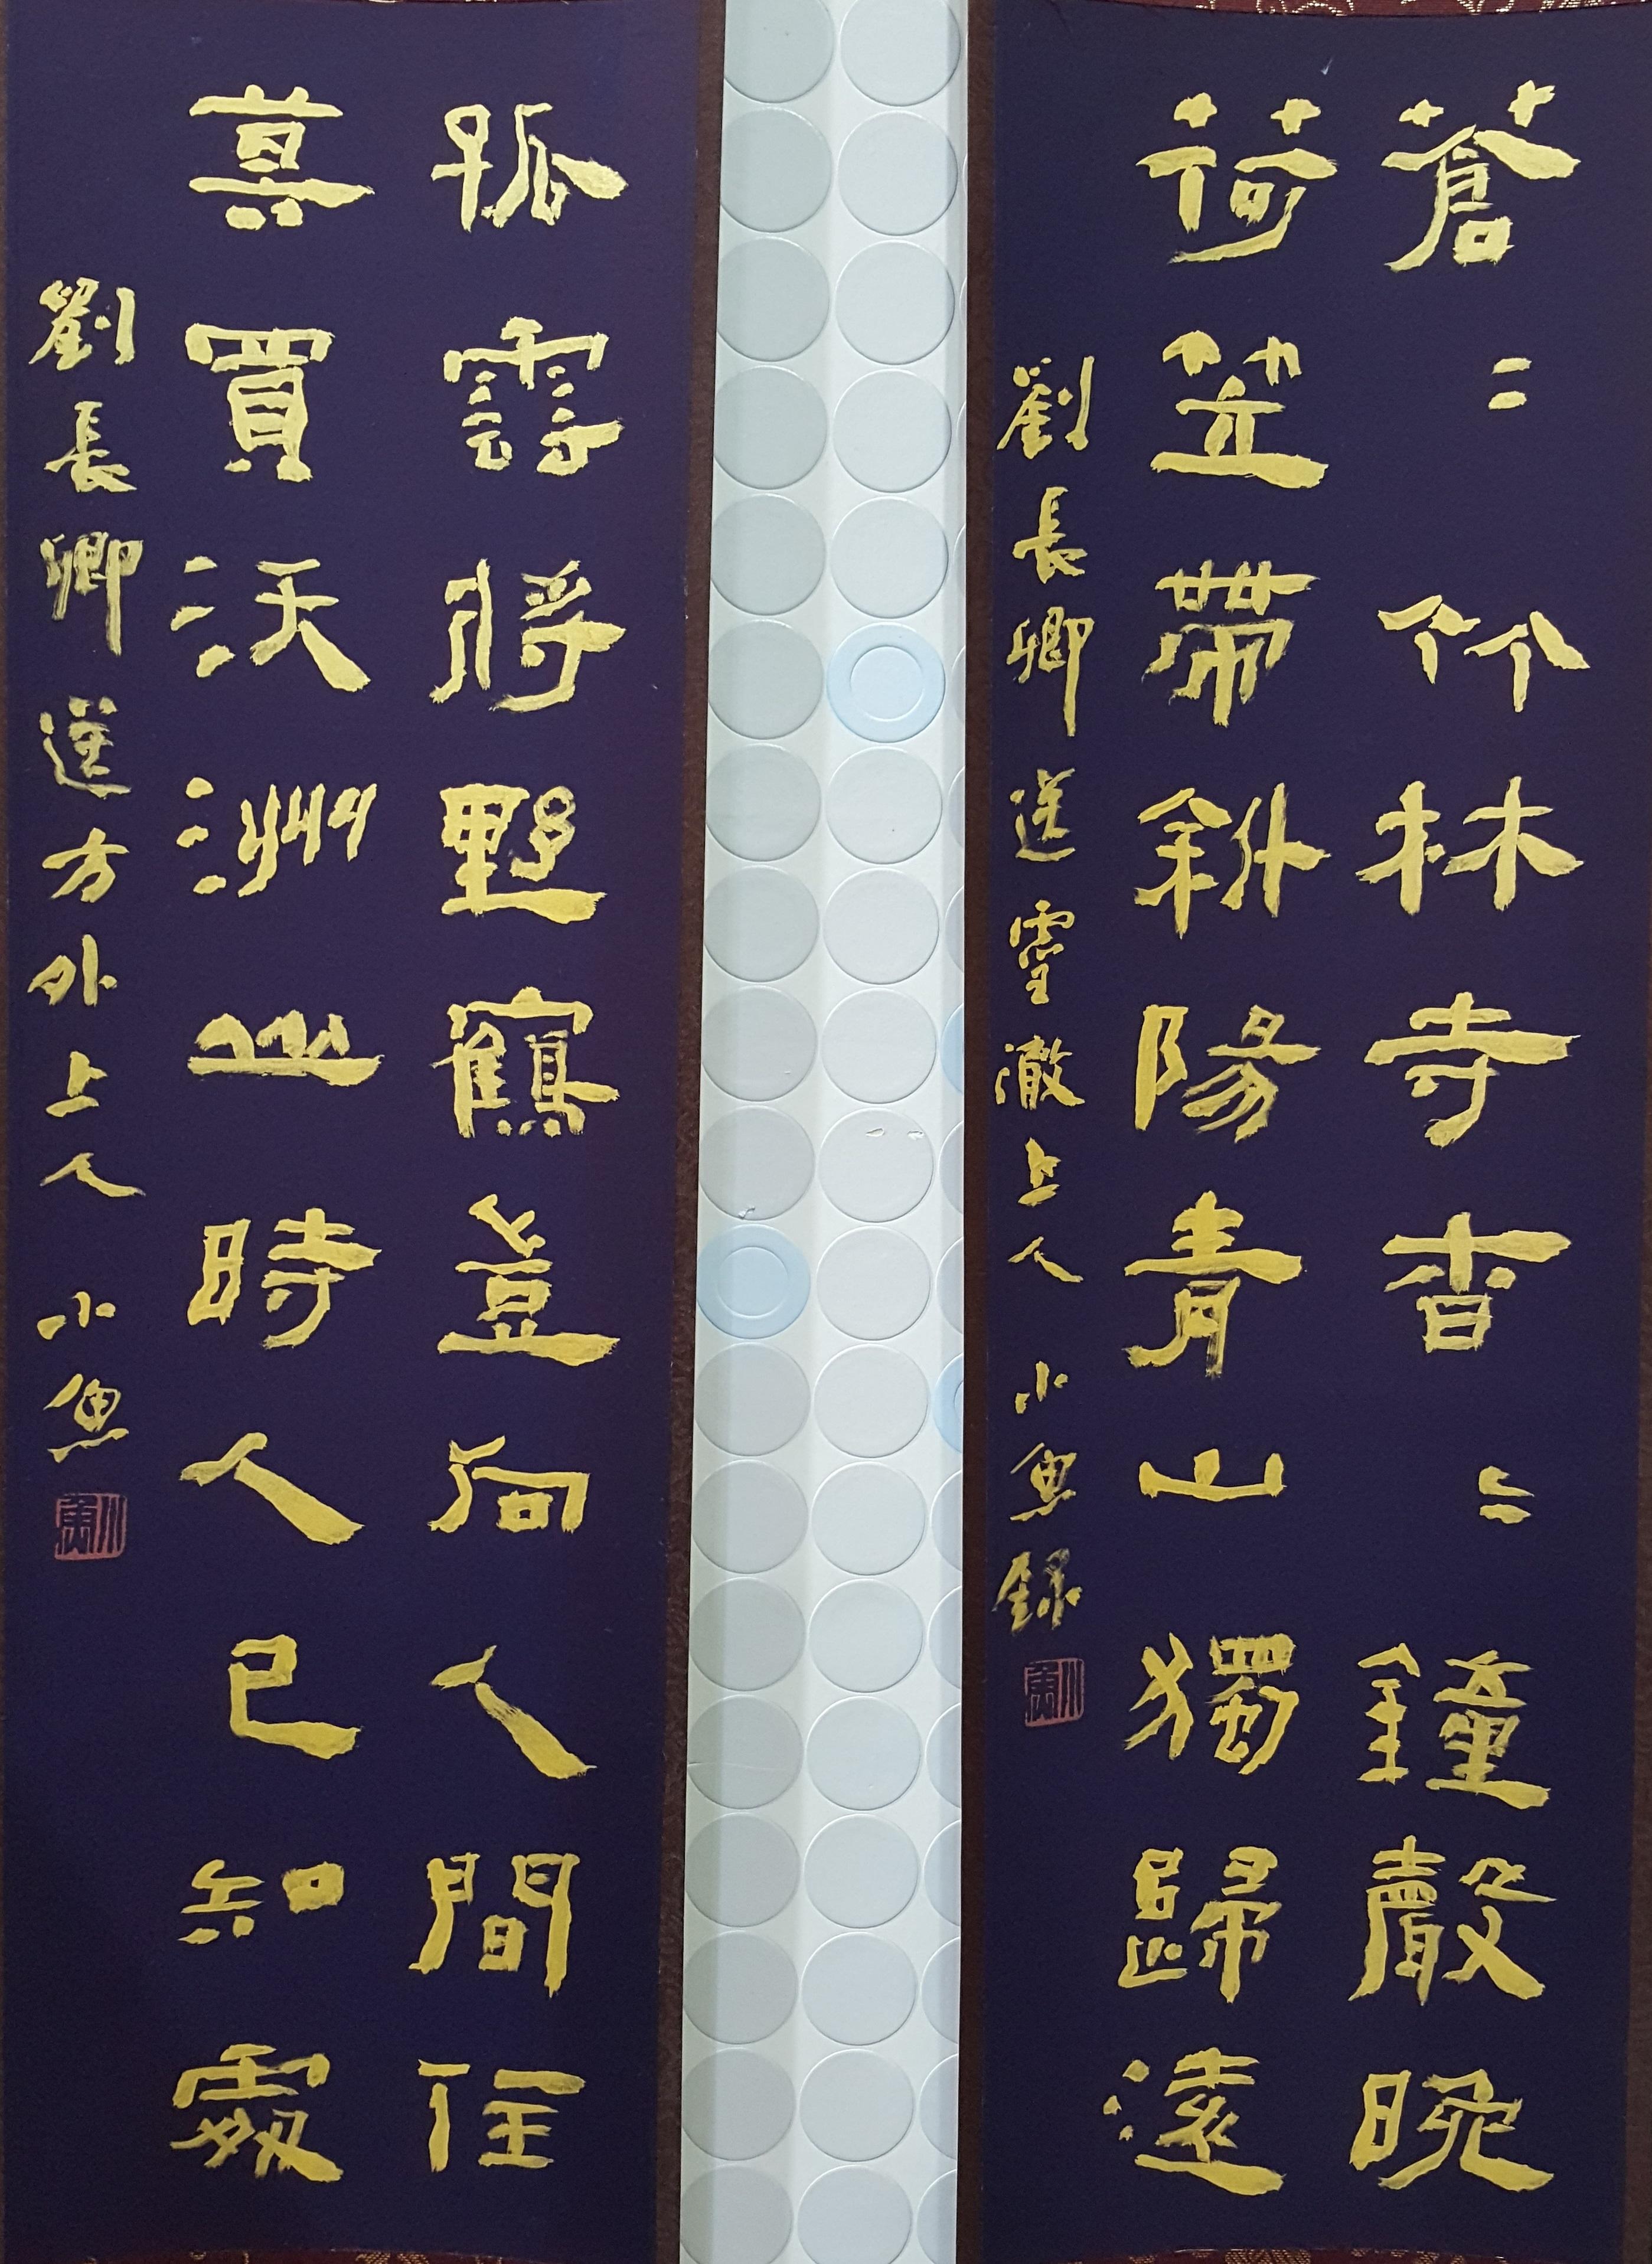 蒼〻竹林寺杳〻鐘聲晚
荷笠帶斜陽青山獨歸遠
劉長卿送靈澈上人 小魚錄
孤雲將野鶴豈向人間住
莫買沃洲山時人已知處
劉長卿送方外上人 小魚